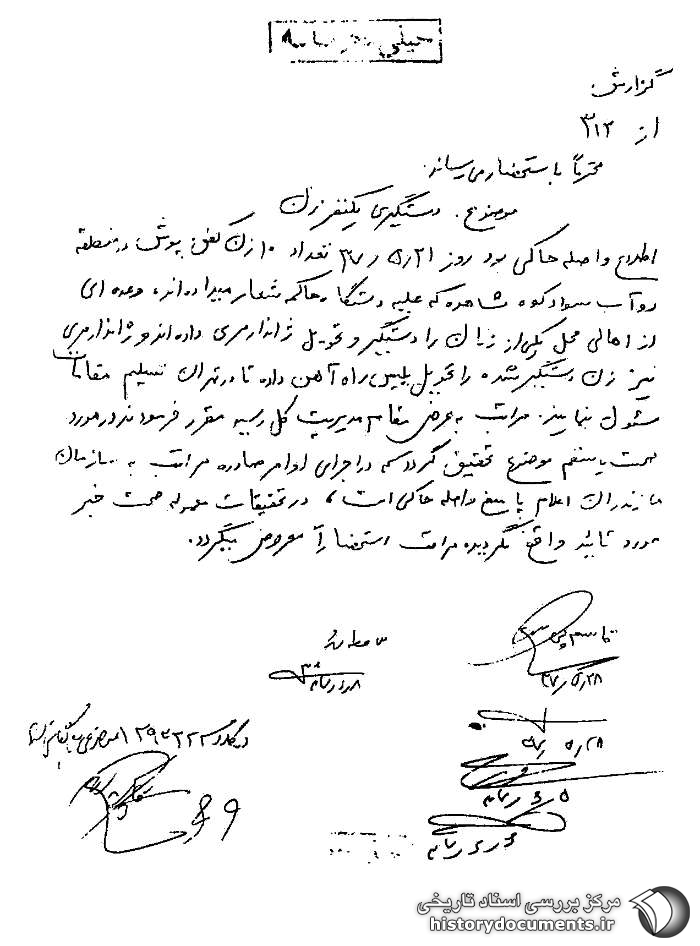 خیلی محرمانه
گزارش
از ۳۱۲
محترماً باستحضار میرساند.
موضوع. دستگیری یکنفر زن
اطلاع واصله حاکی بود روز ۲۱ر۵ر۳۷ تعداد ۱۰ زن کفن پوش در منطقه
دوآب سوادکوه مشاهده که علیه دستگاه حاکمه شعار میداده‌اند، وعده‌ای
از اهالی محل یکی از زنان را دستگیر و تحویل ژاندارمری داده‌اند و ژاندارمری
نیز زن دستگیر شده را تحویل پلیس راه آهن داده تا در تهران تسلیم مقامات
مسئول نمایند. مراتب بعرض مقام مدیریت کل رسیده مقرر فرمودند در مورد
صحت یا سقم موضوع تحقیق گردد که در اجرای اوامر صادره مراتب به سازمان
مازندران اعلام پاسخ واصله حاکی است، در تحقیقات معموله صحت خبر
مورد تائید واقع نگردیده مراتب استحضاراً معروض میگردد.
۲۸ر۵ر۳۷
۲۸ر۵ر
۵ر۶ر
۶ر۶ر
۸۹
مرکز بررسی اسناد تاریخی
historydocuments.ir